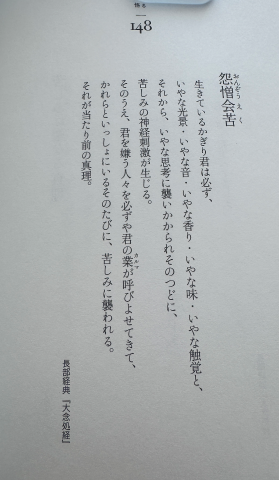 悟る
148
怨憎会苦
おんぞうえく
生きているかぎり君は必ず、
いやな光景・いやな音・いやな香り・いやな味・いやな触覚と、
それから、いやな思考に襲いかかられそのつどに、
苦しみの神経刺激が生じる。
そのうえ、君を嫌う人々を必ずや君の業が呼びよせてきて、
カルマ
かれらといっしょにいるそのたびに、苦しみに襲われる。
それが当たり前の真理。
長部経典『大念処経』